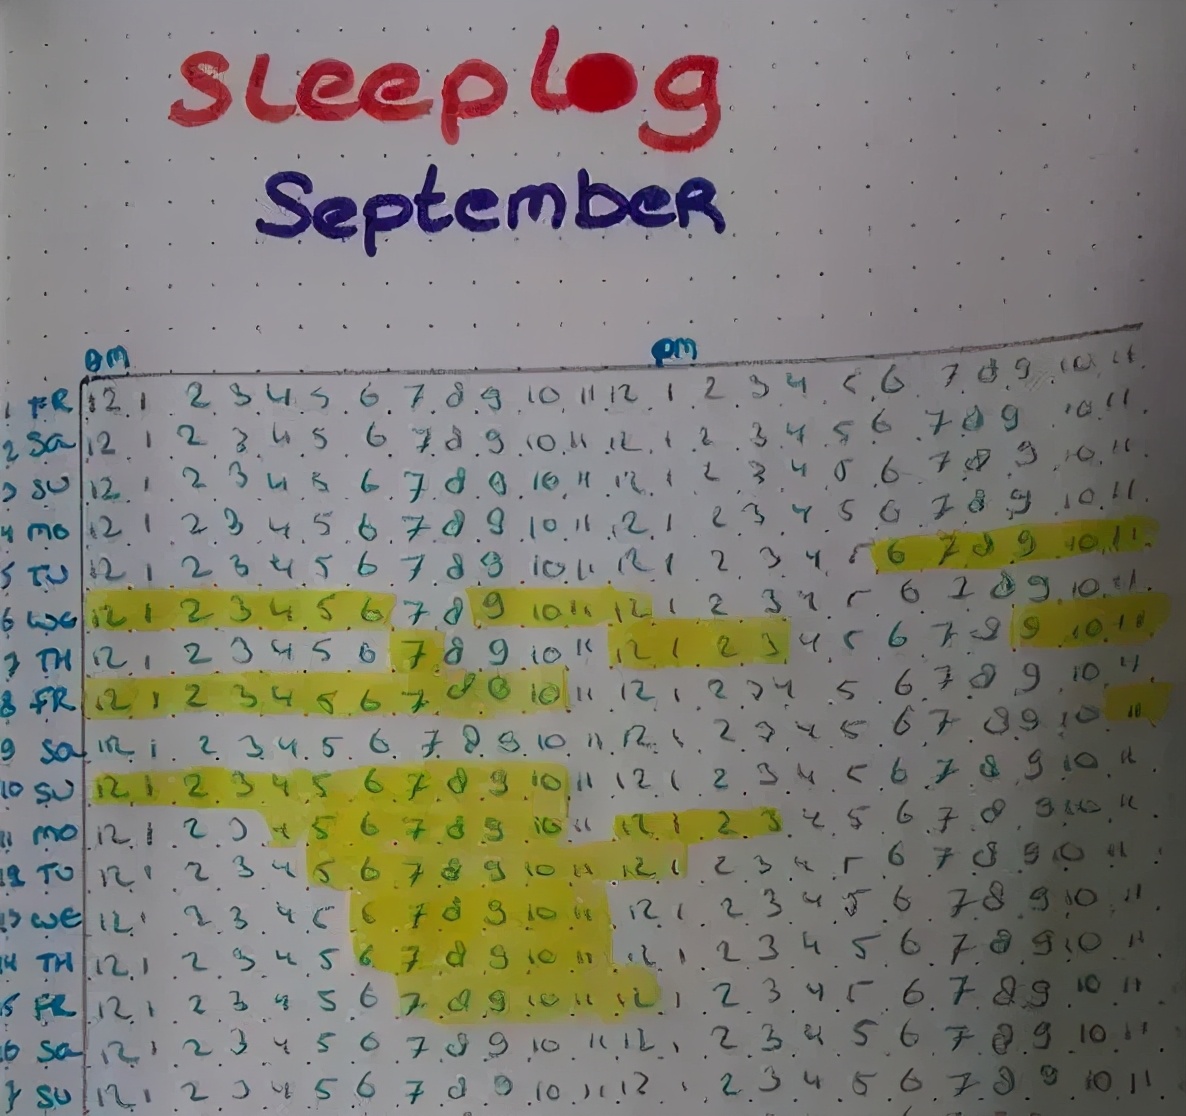 sleeplog
September
am pm
1 FR 12 1 2 3 4 5 6 7 8 9 10 11 12 1 2 3 4 5 6 7 8 9 10 11
2 Sa 12 1 2 3 4 5 6 7 8 9 10 11 12 1 2 3 4 5 6 7 8 9 10 11
3 SU 12 1 2 3 4 5 6 7 8 9 10 11 12 1 2 3 4 5 6 7 8 9 10 11
4 mo 12 1 2 3 4 5 6 7 8 9 10 11 12 1 2 3 4 5 6 7 8 9 10 11
5 TU 12 1 2 3 4 5 6 7 8 9 10 11 12 1 2 3 4 5 6 7 8 9 10 11
6 we 12 1 2 3 4 5 6 7 8 9 10 11 12 1 2 3 4 5 6 7 8 9 10 11
7 TH 12 1 2 3 4 5 6 7 8 9 10 11 12 1 2 3 4 5 6 7 8 9 10 11
8 FR 12 1 2 3 4 5 6 7 8 9 10 11 12 1 2 3 4 5 6 7 8 9 10 11
9 Sa 12 1 2 3 4 5 6 7 8 9 10 11 12 1 2 3 4 5 6 7 8 9 10 11
10 SU 12 1 2 3 4 5 6 7 8 9 10 11 12 1 2 3 4 5 6 7 8 9 10 11
11 mo 12 1 2 3 4 5 6 7 8 9 10 11 12 1 2 3 4 5 6 7 8 9 10 11
12 TU 12 1 2 3 4 5 6 7 8 9 10 11 12 1 2 3 4 5 6 7 8 9 10 11
13 WE 12 1 2 3 4 5 6 7 8 9 10 11 12 1 2 3 4 5 6 7 8 9 10 11
14 TH 12 1 2 3 4 5 6 7 8 9 10 11 12 1 2 3 4 5 6 7 8 9 10 11
5 FR 12 1 2 3 4 5 6 7 8 9 10 11 12 1 2 3 4 5 6 7 8 9 10 11
6 Sa 12 1 2 3 4 5 6 7 8 9 10 11 12 1 2 3 4 5 6 7 8 9 10 11
7 SU 12 1 2 3 4 5 6 7 8 9 10 11 12 1 2 3 4 5 6 7 8 9 10 11